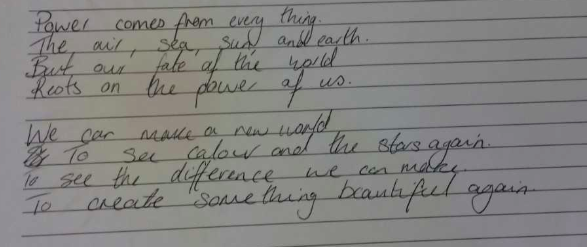 Power comes from every thing.
The, air, sea, sun, and earth.
But our fate of the world
Rests on the power of us.
We can make a new world
To see calour and the stars again.
To see the difference we can make.
To create something beautiful again